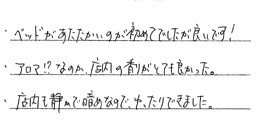 ・ベッドがあたたかいのが初めてでしたが良いです!
・アロマ!?なのか、店内の香りがとても良かった。
・店内も静かで暗めなので、ゆったりできました。